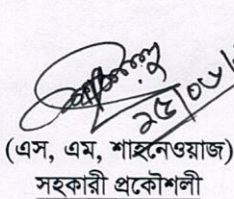 ২৫/০৮/
(এস, এম, শাহনেওয়াজ)
সহকারী প্রকৌশলী